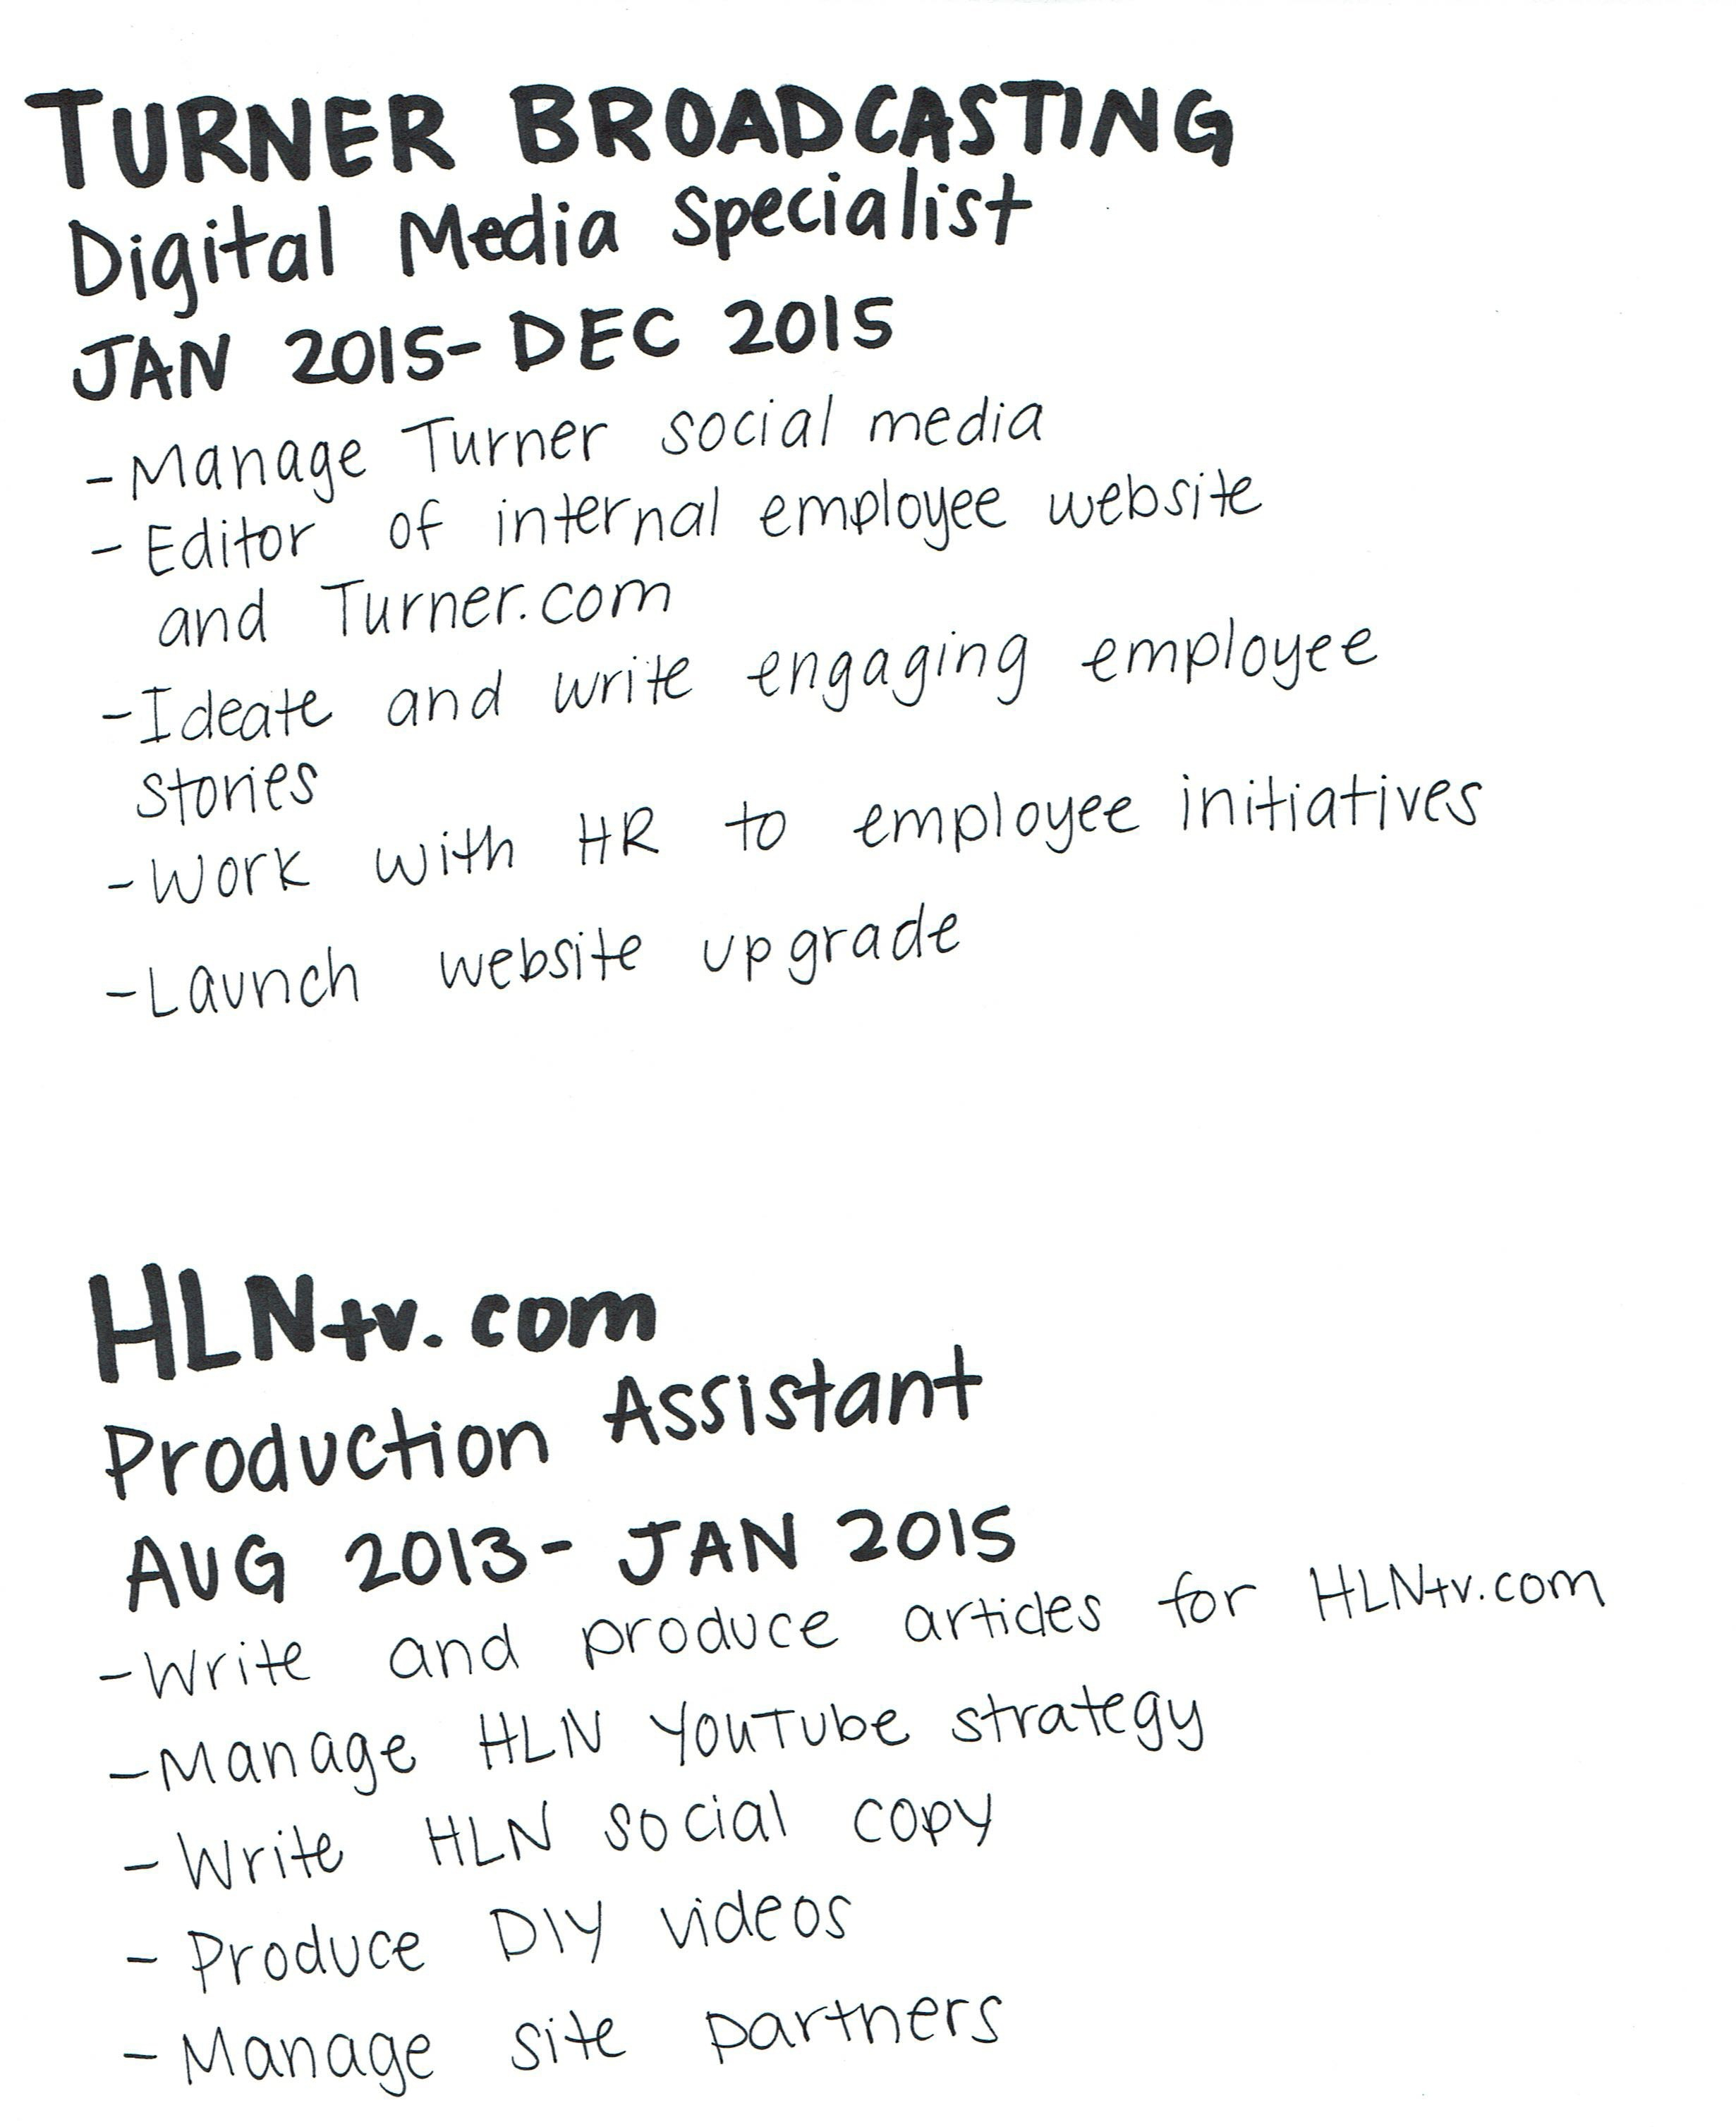 TURNER BROADCASTING
Digital Media Specialist
JAN 2015-DEC 2015
-Manage Turner social media
-Editor of internal employee website
and Turner.com
-Ideate and write engaging employee
stories
-Work with HR to employee initiatives
-Launch website upgrade
HLNtv.com
Production Assistant
AUG 2013- JAN 2015
-Write and produce articles for HLNtv.com
-Manage HLN YouTube strategy
-Write HLN social copy
-Produce DIY videos
-Manage site partners